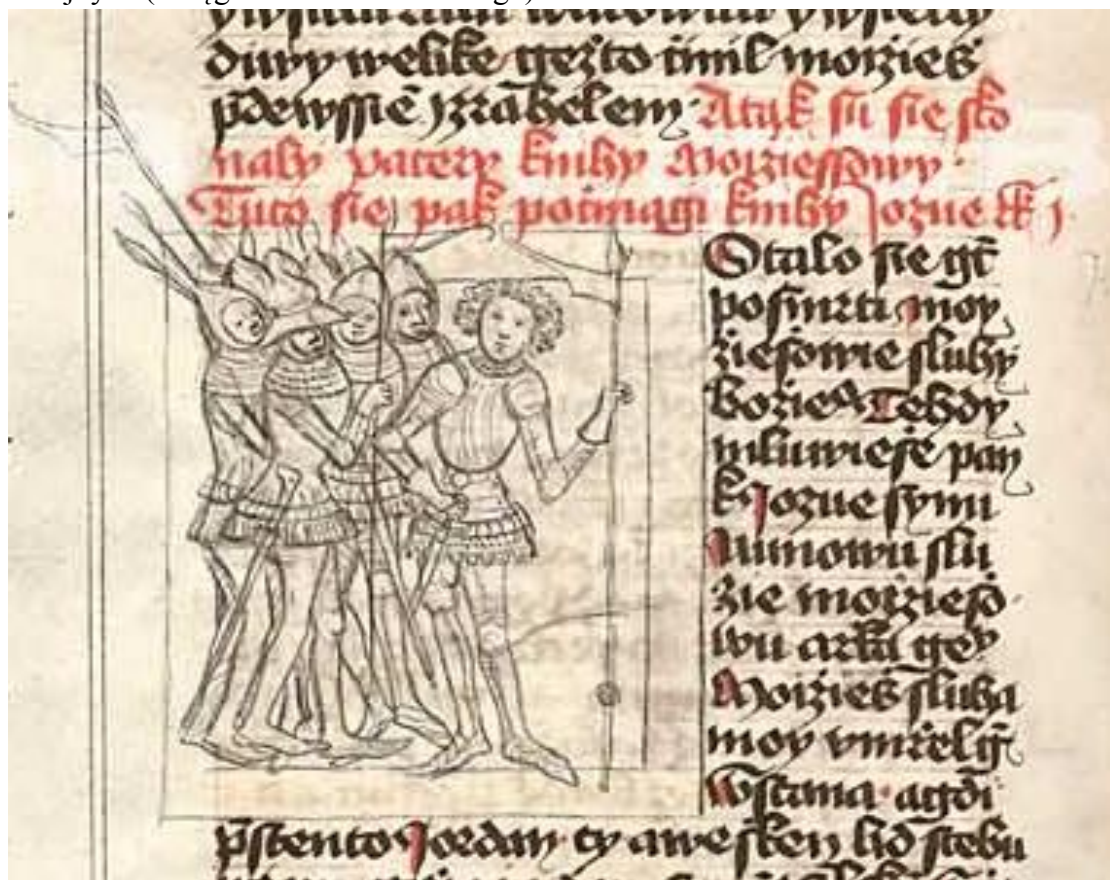 diwy welike gezto činil moizieś
p̄dewssiē yzrahelem · A tak sú sie sko
naly patery knihy Moiziessowy ·
Tuto sie pak počinagi knihy Jozue
Stalo sie gt̄
po smrti moy
ziesowie sluhy
bozie Tehdy
mluwiese pan
k Jozue synu
Nunowu slu
zie moiziesó
wu arka gey
Moizieś sluha
moy vmřel gt̄
Wstana · a gdi
p̄s tento Jordan · ty a wesken lid s tebu